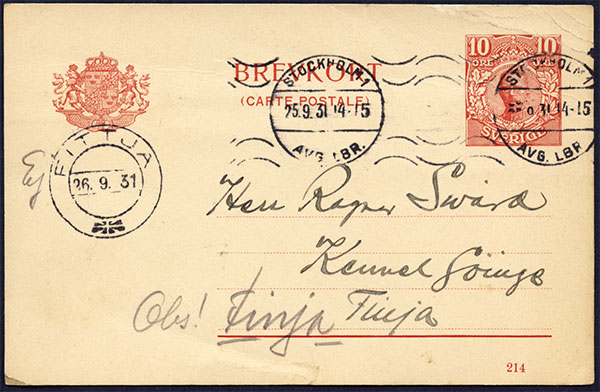 10 ÖRE 10
BREVKORT
(CARTE POSTALE)
SVERIGE
STOCKHOLM 1
25.9.31 14-15
AVG. LBR.
STOCKHOLM 1
9 31 14-15
AVG. LBR.
FITTJA
26. 9. 31
Ej
Herr Ragnar Swärd
Kennel Göinge
Finja
Obs! Finja
214